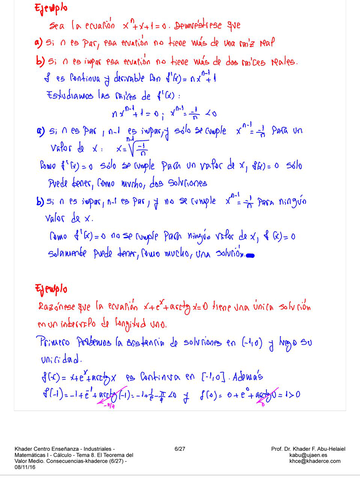 Ejemplo
Sea la ecuación xⁿ+x+1=0. Demuéstrese que
a) Si n es par, esa ecuación no tiene más de una raíz real
b) Si n es impar esa ecuación no tiene más de dos raíces reales.
f es continua y derivable con f'(x)= nxⁿ⁻¹+1
Estudiamos las raíces de f'(x):
nxⁿ⁻¹+1=0; xⁿ⁻¹=-1/n <0
a) Si n es par, n-1 es impar, y sólo se cumple xⁿ⁻¹=-1/n para un
valor de x: x=ⁿ⁻¹√(-1/n)
Como f'(x)=0 sólo se cumple para un valor de x, f(x)=0 sólo
puede tener, como mucho, dos soluciones
b) Si n es impar, n-1 es par, y no se cumple xⁿ⁻¹=-1/n para ningún
valor de x.
Como f'(x)=0 no se cumple para ningún valor de x, f(x)=0
solamente puede tener, como mucho, una solución
Ejemplo
Razónese que la ecuación x+eˣ+arctg x=0 tiene una única solución
en un intervalo de longitud uno.
Primero probemos la existencia de soluciones en (-1,0) y luego su
unicidad.
f(x)= x+eˣ+arctg x es continua en [-1,0]. Además
f(-1)=-1+e⁻¹+arctg(-1)=-1+1/e-π/4<0 y f(0)= 0+e⁰+arctg 0=1>0
Khader Centro Enseñanza - Industriales -
Matemáticas I - Cálculo - Tema 8. El Teorema del
Valor Medio. Consecuencias-khaderce (6/27) -
08/11/16
6/27
Prof. Dr. Khader F. Abu-Helaiel
kabu@ujaen.es
khce@khaderce.com